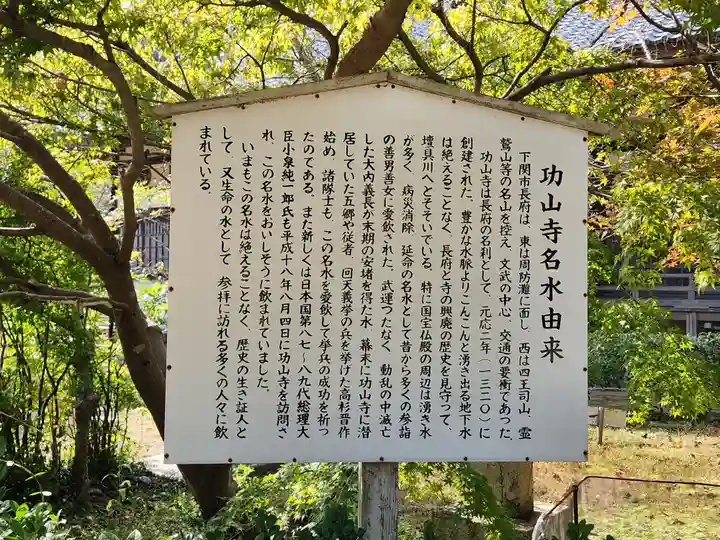 功山寺名水由来
下関市長府は、東は周防灘に面し、西は四王司山、霊
鷲山等の名山を控え、文武の中心、交通の要衝であった。
功山寺は長府の名刹として、元応二年(一三二〇)に
創建された。豊かな水脈よりこんこんと湧き出る地下水
は絶えることなく、長府と寺の興廃の歴史を見守って、
壇具川へとそそいでいる。特に国宝仏殿の周辺は湧き水
が多く、病災消除、延命の名水として昔から多くの参詣
の善男善女に愛飲された。武運つたなく、動乱の中滅亡
した大内義長が末期の安堵を得た水、幕末に功山寺に潜
居していた五卿や従者、回天義挙の兵を挙げた高杉晋作
始め、諸隊士も、この名水を愛飲して挙兵の成功を祈っ
たのである。また新しくは日本国第八七〜八九代総理大
臣小泉純一郎氏も平成十八年八月四日に功山寺を訪問さ
れ、この名水をおいしそうに飲まれていました。
いまもこの名水は絶えることなく、歴史の生き証人と
して、又生命の水として、参拝に訪れる多くの人々に飲
まれている。